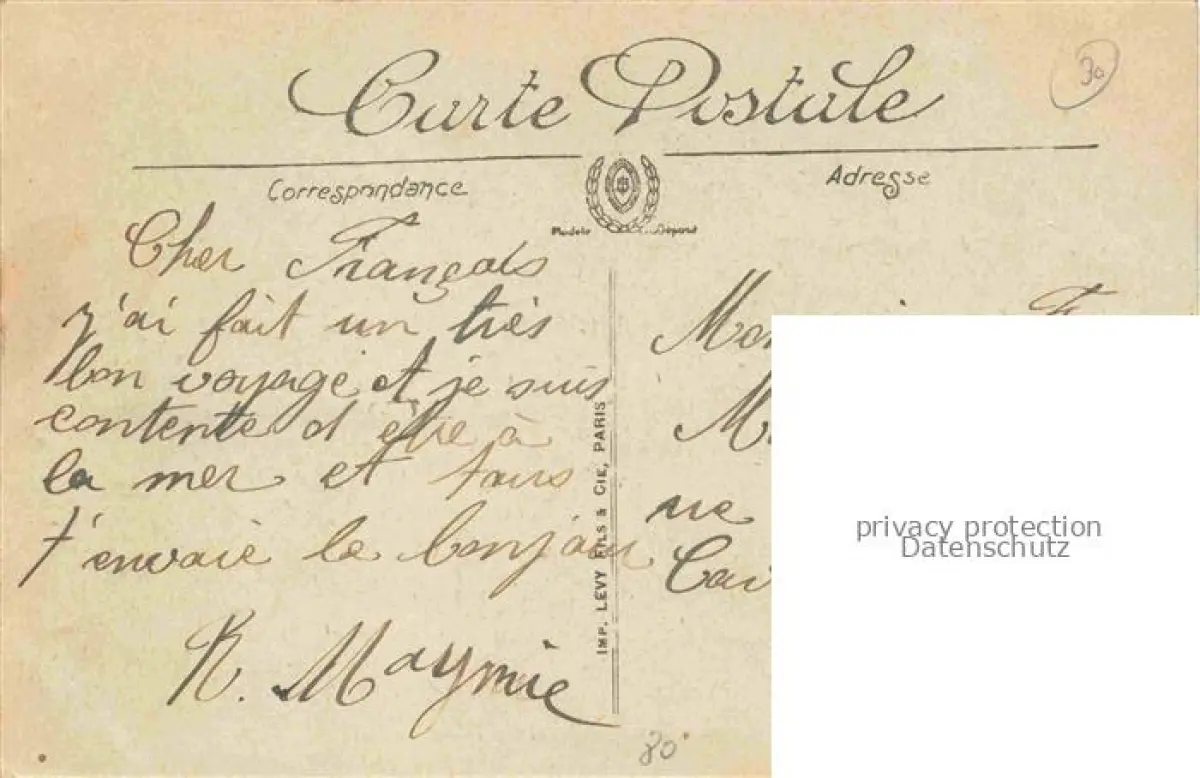 Carte Postale
30
Correspondance
Adresse
Modèle Déposé
Cher François
j'ai fait un très
bon voyage et je suis
contente d'être à
la mer et tous
t'envoie le bonjour
R. Maymie
IMP. LEVY FILS & CIE, PARIS
ne
privacy protection
Datenschutz
80